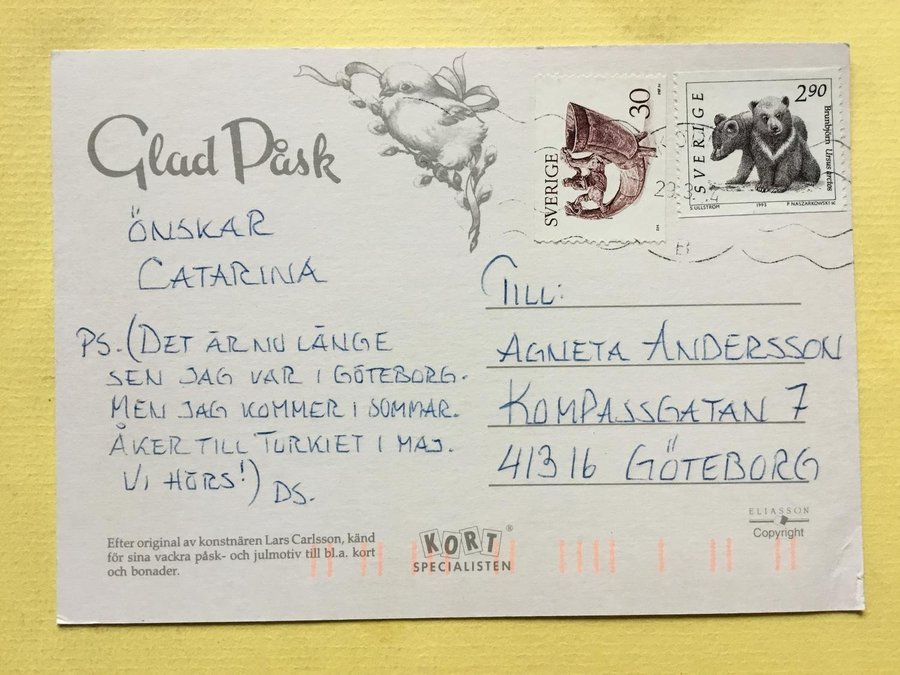 Glad Påsk
ÖNSKAR
CATARINA
PS. (DET ÄR NU LÄNGE
SEN JAG VAR I GÖTEBORG.
MEN JAG KOMMER I SOMMAR.
ÅKER TILL TURKIET I MAJ.
VI HÖRS!) DS.
Efter original av konstnären Lars Carlsson, känd
för sina vackra påsk- och julmotiv till bl.a. kort
och bonader.
KORT®
SPECIALISTEN
SVERIGE
30
SVERIGE
290
Brunbjörn Ursus arctos
S. ULLSTRÖM 1993 P. NASZARKOWSKI SC
TILL:
AGNETA ANDERSSON
KOMPASSGATAN 7
413 16 GÖTEBORG
ELIASSON
Copyright